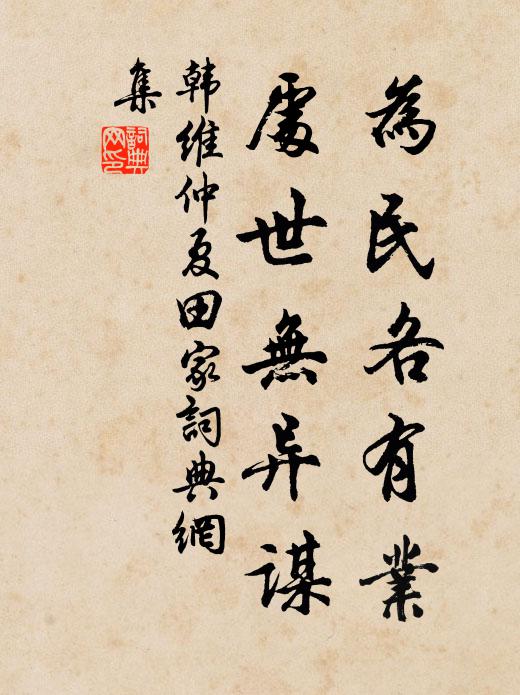 為民各有業
處世無异謀
韩維仲夏田家詞典網
集
詞典
网印